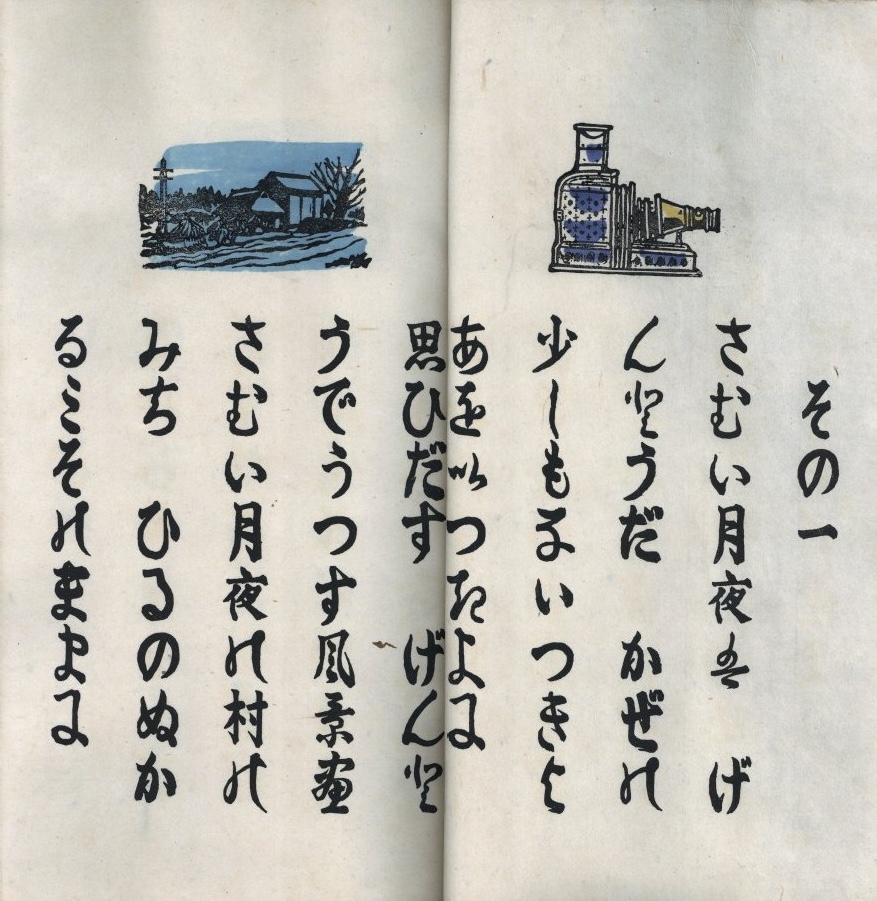 その一
さむい月夜は　げ
んとうだ　かぜの
少しもないつきよ
あをいつきよに
思ひだす　げんと
うでうつす風景画
さむい月夜の村の
みち　ひるのぬか
るみそのままに